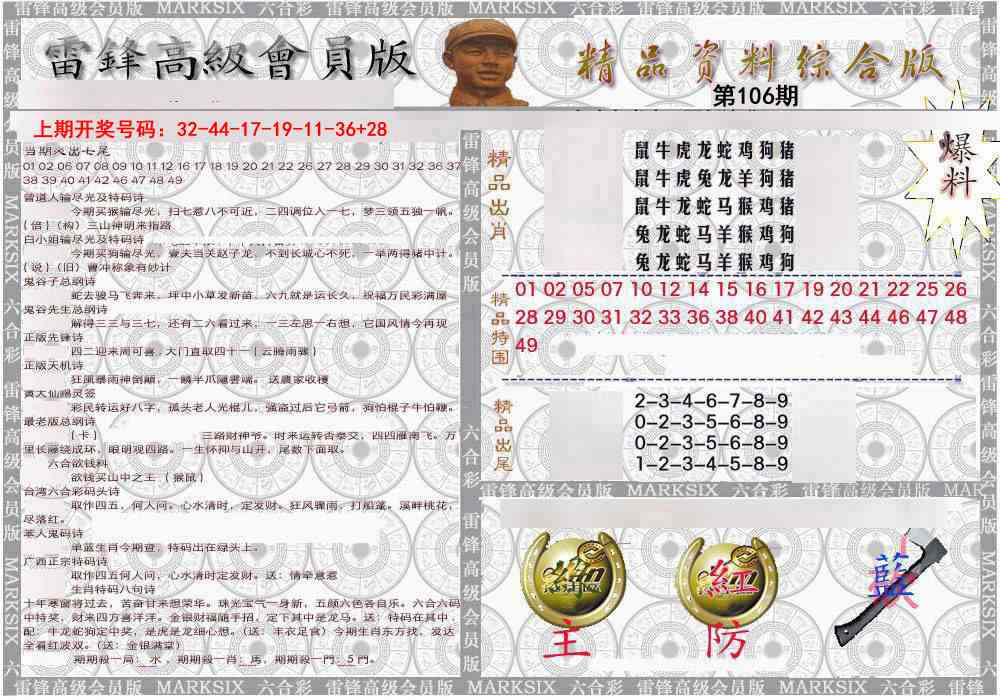 雷锋高级会员版 MARKSIX 六合彩 雷锋高级会员版 MARKSIX 六合彩 雷锋高级会员版 MARKSIX 六合彩 雷锋
雷鋒高級會員版
精品资料综合版
第106期
上期开奖号码：32-44-17-19-11-36+28
当期火出七尾
01 02 06 07 08 09 10 11 12 16 17 18 19 20 21 22 26 27 28 29 30 31 32 36 37
38 39 40 41 42 46 47 48 49
曾道人输尽光及特码诗
今期买猴输尽光，扫七惹八不可近，二四调位入一七，梦三领五独一帆。
{倍}（构）三山神明来指路
白小姐输尽光及特码诗
今期买狗输尽光，壹夫当关赵子龙，不到长城心不死，一举两得猪中计。
{说}（旧）曹冲称象有妙计
鬼谷子总纲诗
蛇去骏马飞奔来，坪中小草发新苗，六九就是运长久，祝福万民彩满屋
鬼谷先生总纲诗
解得三三与三七，还有二六看过来，一三左思一右想，它国风情今再现
正版先锋诗
四二迎来周可喜，大门直取四十一{云腾雨骤}
正版天机诗
狂風暴雨神倒顛，一鱗半爪隱雲端。 送農家收樓
黄大仙赐灵签
彩民转运好八字，孤头老人光棍儿，强盗过后它弓箭，狗怕棍子牛怕鞭。
最老版总纲诗
{卡} 三路财神爷。时来运转否泰交，四四雁南飞。万
里长藤绕成环，眼明观四路。一生怀抑与山开，尾数下面取。
六合欲钱料
欲钱买山中之王 {猴鼠}
台湾六合彩码头诗
取作四五，何人问。心水清时，定发财。狂风骤雨，打船篷。溪畔桃花，
尽落红。
苯人鬼码诗
单蓝生肖今期查，特码出在绿头上。
广西正宗特码诗
取作四五何人问，心水清时定发财。送：情牵意惹
生肖特码八句诗
十年寒窗将过去，苦奋甘来想荣华。珠光宝气一身新，五颜六色各自乐。六合六码
中特奖，财来四方喜洋洋。金银财福随手招，定下其中是龙马。送：特码在其中，
配：牛龙蛇狗定中奖，是虎是龙细心想。(送：丰衣足食) 今期生肖东方找，发达
全看红波双。(送：金银满堂)
期期殺一局：水，期期殺一肖：馬，期期殺一門：5門。
精品出肖
鼠牛虎龙蛇鸡狗猪
鼠牛虎兔龙羊狗猪
鼠牛龙蛇马猴鸡猪
兔龙蛇马羊猴鸡狗
兔龙蛇马羊猴鸡狗
爆料
精品特围
01 02 05 07 10 12 14 15 16 17 19 20 21 22 25 26
28 29 30 31 32 33 36 38 40 41 42 43 44 46 47 48
49
精品出尾
2-3-4-6-7-8-9
0-2-3-5-6-8-9
0-2-3-5-6-8-9
1-2-3-4-5-8-9
雷锋高级会员版 MARKSIX 六合彩 雷锋高级会员版 MAR
紅
藍
主
防
雷锋高级会员版 MARKSIX 六合彩 雷锋高级会员版 MARKSIX 六合彩 雷锋高级会员版 MARKSIX 六合彩 雷锋